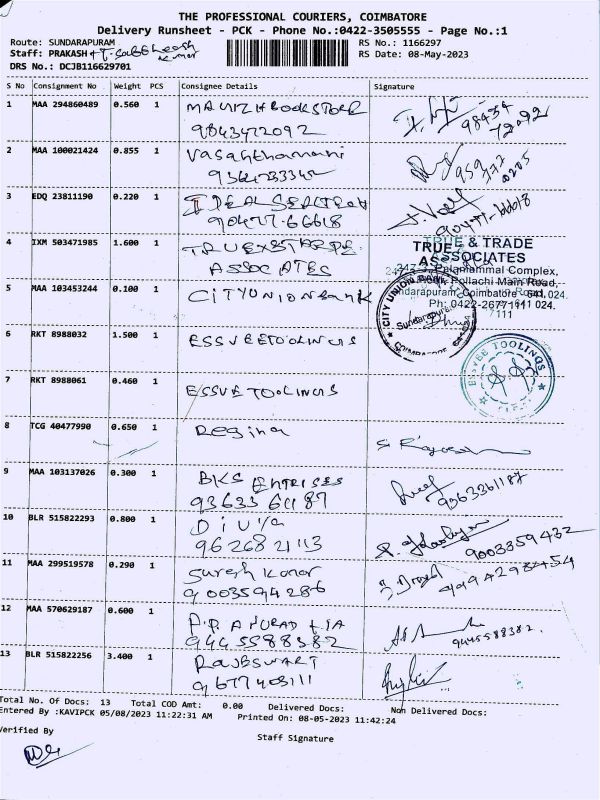 THE PROFESSIONAL COURIERS, COIMBATORE
Delivery Runsheet - PCK - Phone No.:0422-3505555 - Page No.:1
Route: SUNDARAPURAM RS No.: 1166297
Staff: PRAKASH + RS Date: 08-May-2023
DRS No.: DCJB116629701
S No Consignment No Weight PCS Consignee Details Signature
1 MAA 294860489 0.560 1
9843472092 98434
72092
2 MAA 100021424 0.855 1 Vasanthamani
3 EDQ 23811190 0.220 1
90477-66618
4 IXM 503471985 1.600 1
ASSOCIATES
TRUE & TRADE
ASSOCIATES
Palamammal Complex,
Pollachi Main Road,
Sundarapuram, Coimbatore - 641 024.
Ph: 0422-2677111
5 MAA 103453244 0.100 1 CITY UNION Bank
CITY UNION BANK
Sundarapuram
COIMBATORE
6 RKT 8988032 1.500 1 ESSVEE TOOLINGS
ESSVEE TOOLINGS
7 RKT 8988061 0.460 1 ESSVE TOOLINGS
8 TCG 40477990 0.650 1 Regina
9 MAA 103137026 0.300 1 BKS
93633 61187 9363361187
10 BLR 515822293 0.800 1 Divya
96268 21113 9003359432
11 MAA 299519578 0.290 1 Suresh Kumar
9003594286 9994298454
12 MAA 570629187 0.600 1
9445588382 9445588382.
13 BLR 515822256 3.400 1
9677403111
Total No. Of Docs: 13 Total COD Amt: 0.00 Delivered Docs: Non Delivered Docs:
Entered By :KAVIPCK 05/08/2023 11:22:31 AM Printed On: 08-05-2023 11:42:24
Verified By Staff Signature